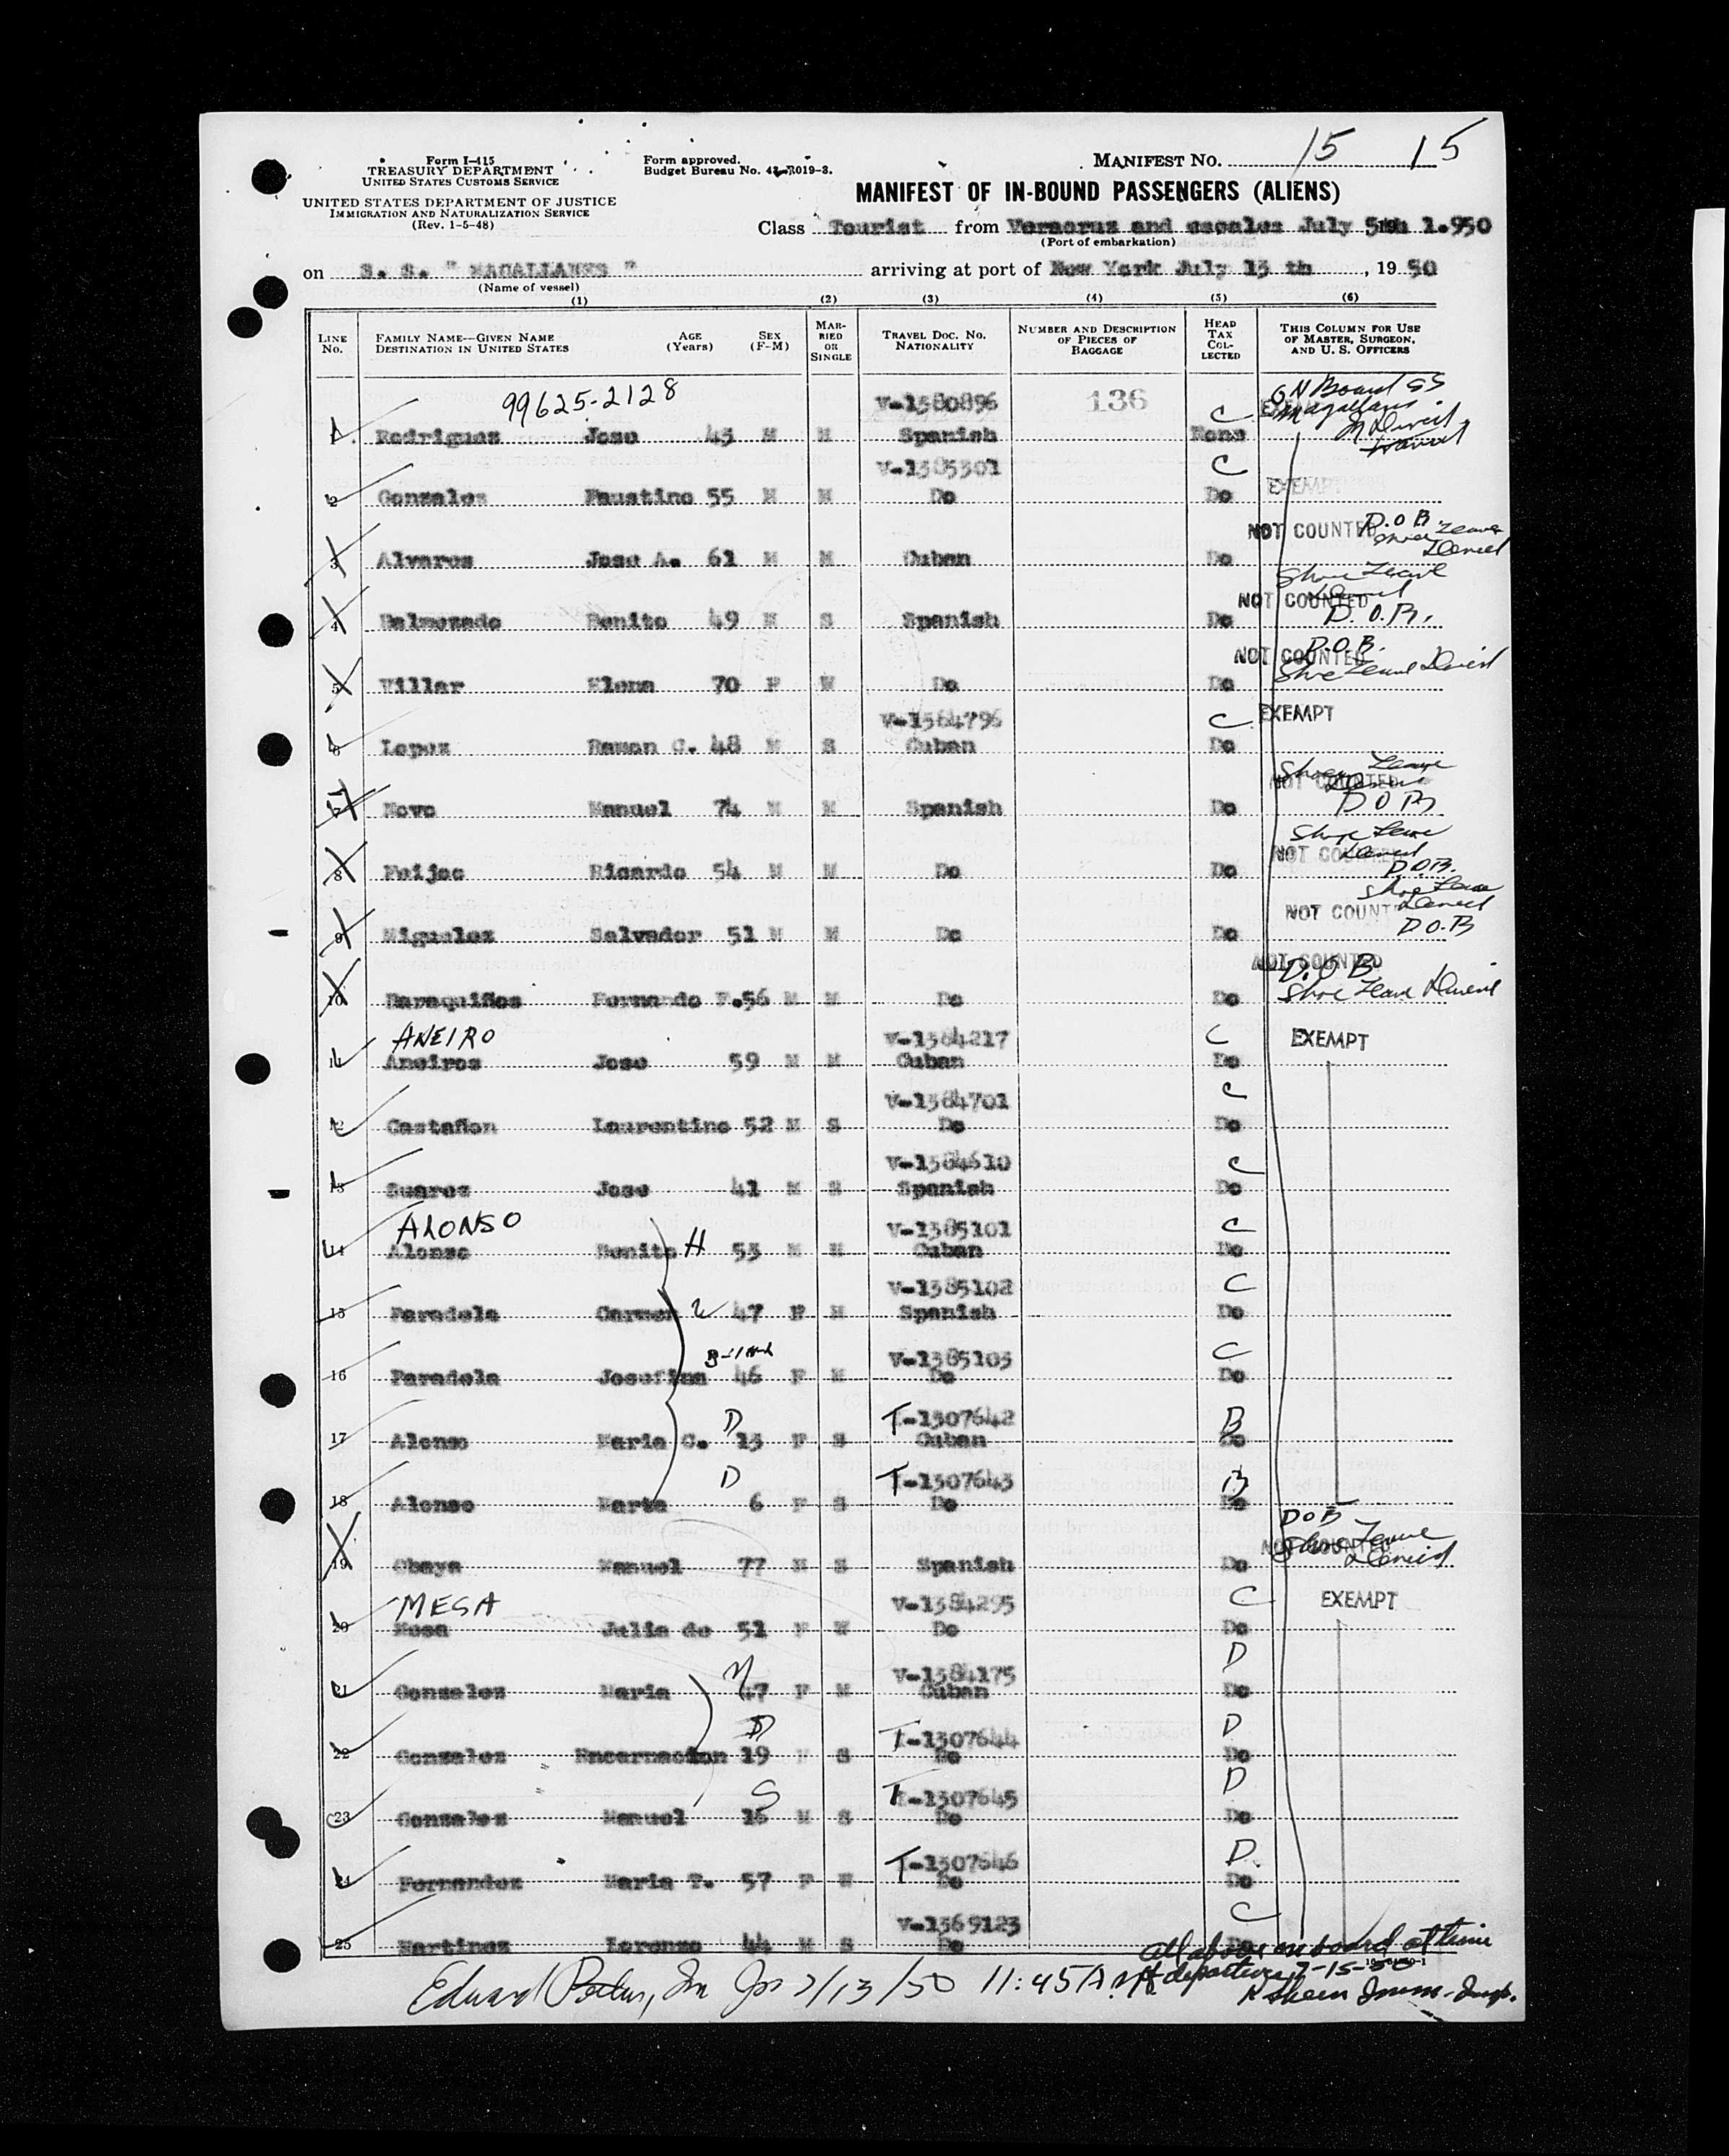 MANIFEST NO. 15 15
Form I-415
TREASURY DEPARTMENT
UNITED STATES CUSTOMS SERVICE
Form approved.
Budget Bureau No. 43-R019-3.
UNITED STATES DEPARTMENT OF JUSTICE
IMMIGRATION AND NATURALIZATION SERVICE
(Rev. 1-5-48)
MANIFEST OF IN-BOUND PASSENGERS (ALIENS)
Class Tourist from Veracruz and escales July 5th 1.950
(Port of embarkation)
on S. S. " MAGALLANES " arriving at port of New York July 13 th , 19 50
(Name of vessel)
(1) (2) (3) (4) (5) (6)
LINE No. FAMILY NAME—GIVEN NAME DESTINATION IN UNITED STATES AGE (Years) SEX (F-M) MARRIED OR SINGLE TRAVEL DOC. NO. NATIONALITY NUMBER AND DESCRIPTION OF PIECES OF BAGGAGE HEAD TAX COLLECTED THIS COLUMN FOR USE OF MASTER, SURGEON, AND U. S. OFFICERS
99625-2128 V-1380896 136 C ON Board SS Magallanes
1 Rodriguez Jose 43 M M Spanish None
V-1385301 C
2 Gonzalez Faustino 55 M M Do Do EXEMPT
NOT COUNTED D.O.B. Shore Leave Denied
3 Alvarez Jose A. 61 M M Cuban Do
Shore Leave Denied NOT COUNTED
4 Benito 49 M S Spanish Do D.O.B.
D.O.B. NOT COUNTED
5 Villar Elena 70 F W Do Do Shore Leave Denied
V-1364796 C EXEMPT
6 Lopez Ramon C. 48 M S Cuban Do
Shore Leave Denied NOT COUNTED
7 Novo Manuel 74 M M Spanish Do D O B
Shore Leave Denied NOT COUNTED
8 Feijoo Ricardo 54 M M Do Do D.O.B.
Shore Leave Denied NOT COUNTED
9 Miguelez Salvador 51 M M Do Do D O.B
NOT COUNTED D.O.B.
10 Baraquiños Fernando F. 56 M M Do Do Shore Leave Denied
ANEIRO V-1384217 C EXEMPT
11 Aneiros Jose 59 M M Cuban Do
V-1384701 C
12 Castañon Laurentino 52 M S Do Do
V-1384610 C
13 Suarez Jose 41 M M Spanish Do
ALONSO V-1385101 C
14 Alonso Benito H 53 M M Cuban Do
V-1385102 C
15 Paradela Carmen W 47 F M Spanish Do
V-1385103 C
16 Paradela Josefina 46 F M Do Do
D T-1307642 B
17 Alonso Maria C. 13 F S Cuban Do
D T-1307643 B
18 Alonso Marta 6 F S Do Do
DOB Shore Leave Denied NOT COUNTED
19 Obaya Manuel 77 M S Spanish Do
MESA V-1384295 C EXEMPT
20 Mesa Julia de 51 F W Do Do
M V-1384175 D
21 Gonzalez Maria 47 F M Cuban Do
D T-1307644 D
22 Gonzalez Encarnacion 19 F S Do Do
S T-1307645 D
23 Gonzalez Manuel 16 M S Do Do
T-1307646 D
24 Fernandez Maria T. 57 F W Do Do
V-1369123 C
25 Martinez Lorenzo 44 M S Do Do
All above on board at time
of departure 7-15-50
Edward 7/13/50 11:45 A.M.
Imm. Insp.